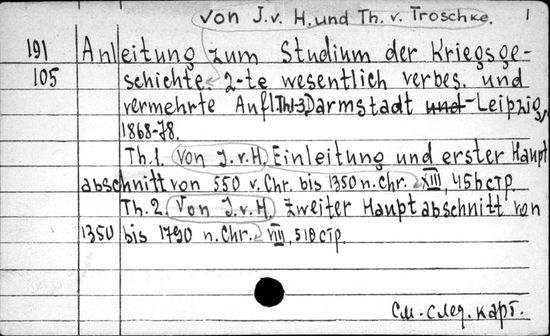 von J. v. H. und Th. v. Troschke. 1
191 Anleitung zum Studium der Kriegsge-
105 schichte 2-te wesentlich verbes. und
vermehrte Aufl. Th 1-3 Darmstadt und - Leipzig,
1868-78.
Th. 1. von J. v. H. Einleitung und erster Haupt
abschnitt von 550 v. Chr. bis 1350 n. Chr. XIII, 456 стр.
Th. 2. von J. v. H. Zweiter Hauptabschnitt von
1350 bis 1790 n. Chr. VIII, 518 стр.
См. след. карт.